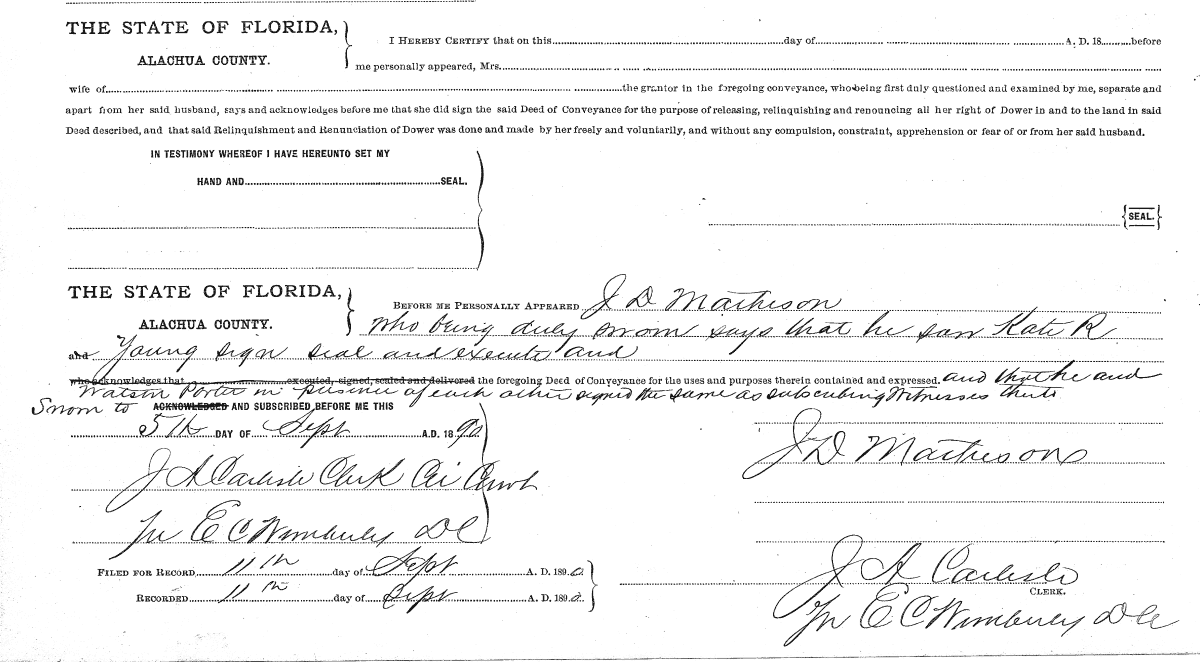 THE STATE OF FLORIDA,
ALACHUA COUNTY.
I HEREBY CERTIFY that on this day of A. D. 18 before
me personally appeared, Mrs.
wife of the grantor in the foregoing conveyance, who being first duly questioned and examined by me, separate and
apart from her said husband, says and acknowledges before me that she did sign the said Deed of Conveyance for the purpose of releasing, relinquishing and renouncing all her right of Dower in and to the land in said
Deed described, and that said Relinquishment and Renunciation of Dower was done and made by her freely and voluntarily, and without any compulsion, constraint, apprehension or fear of or from her said husband.
IN TESTIMONY WHEREOF I HAVE HEREUNTO SET MY
HAND AND SEAL.
SEAL.
THE STATE OF FLORIDA,
ALACHUA COUNTY.
BEFORE ME PERSONALLY APPEARED J D Matheson
who being duly sworn says that he saw Kate R
and Young sign seal and execute and
who acknowledges that executed, signed, sealed and delivered the foregoing Deed of Conveyance for the uses and purposes therein contained and expressed. and that he and
Watson Porter in presence of each other signed the same as subscribing witnesses thereto
Sworn to ACKNOWLEDGED AND SUBSCRIBED BEFORE ME THIS
5th DAY OF Sept A.D. 1890
J D Matheson
J A Carlisle Clerk Cir Court
Per E C Wimberly D C
FILED FOR RECORD 11th day of Sept A. D. 1890
RECORDED 11th day of Sept A. D. 1890
J A Carlisle
CLERK.
Per E C Wimberly D C